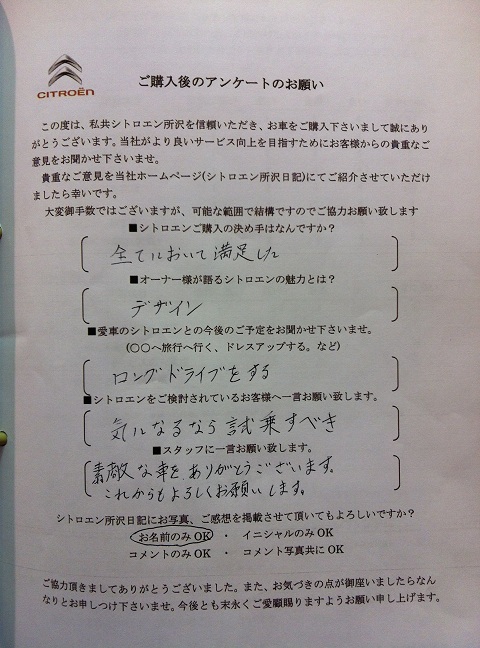 CITROËN
ご購入後のアンケートのお願い
この度は、私共シトロエン所沢を信頼いただき、お車をご購入下さいまして誠にあり
がとうございます。当社がより良いサービス向上を目指すためにお客様からの貴重なご
意見をお聞かせ下さいませ。
貴重なご意見を当社ホームページ(シトロエン所沢日記)にてご紹介させていただけ
ましたら幸いです。
大変御手数ではございますが、可能な範囲で結構ですのでご協力お願い致します
■シトロエンご購入の決め手はなんですか?
全てにおいて満足した
■オーナー様が語るシトロエンの魅力とは?
デザイン
■愛車のシトロエンとの今後のご予定をお聞かせ下さいませ。
(○○へ旅行へ行く、ドレスアップする。など)
ロングドライブをする
■シトロエンをご検討されているお客様へ一言お願い致します。
気になるなら試乗すべき
■スタッフに一言お願い致します。
素敵な車をありがとうございます。
これからもよろしくお願いします。
シトロエン所沢日記にお写真、ご感想を掲載させて頂いてもよろしいですか?
お名前のみ OK ・ イニシャルのみ OK
コメントのみ OK ・ コメント写真共に OK
ご協力頂きましてありがとうございました。また、お気づきの点が御座いましたらなん
なりとお申しつけ下さいませ。今後とも末永くご愛顧賜りますようお願い申し上げます。